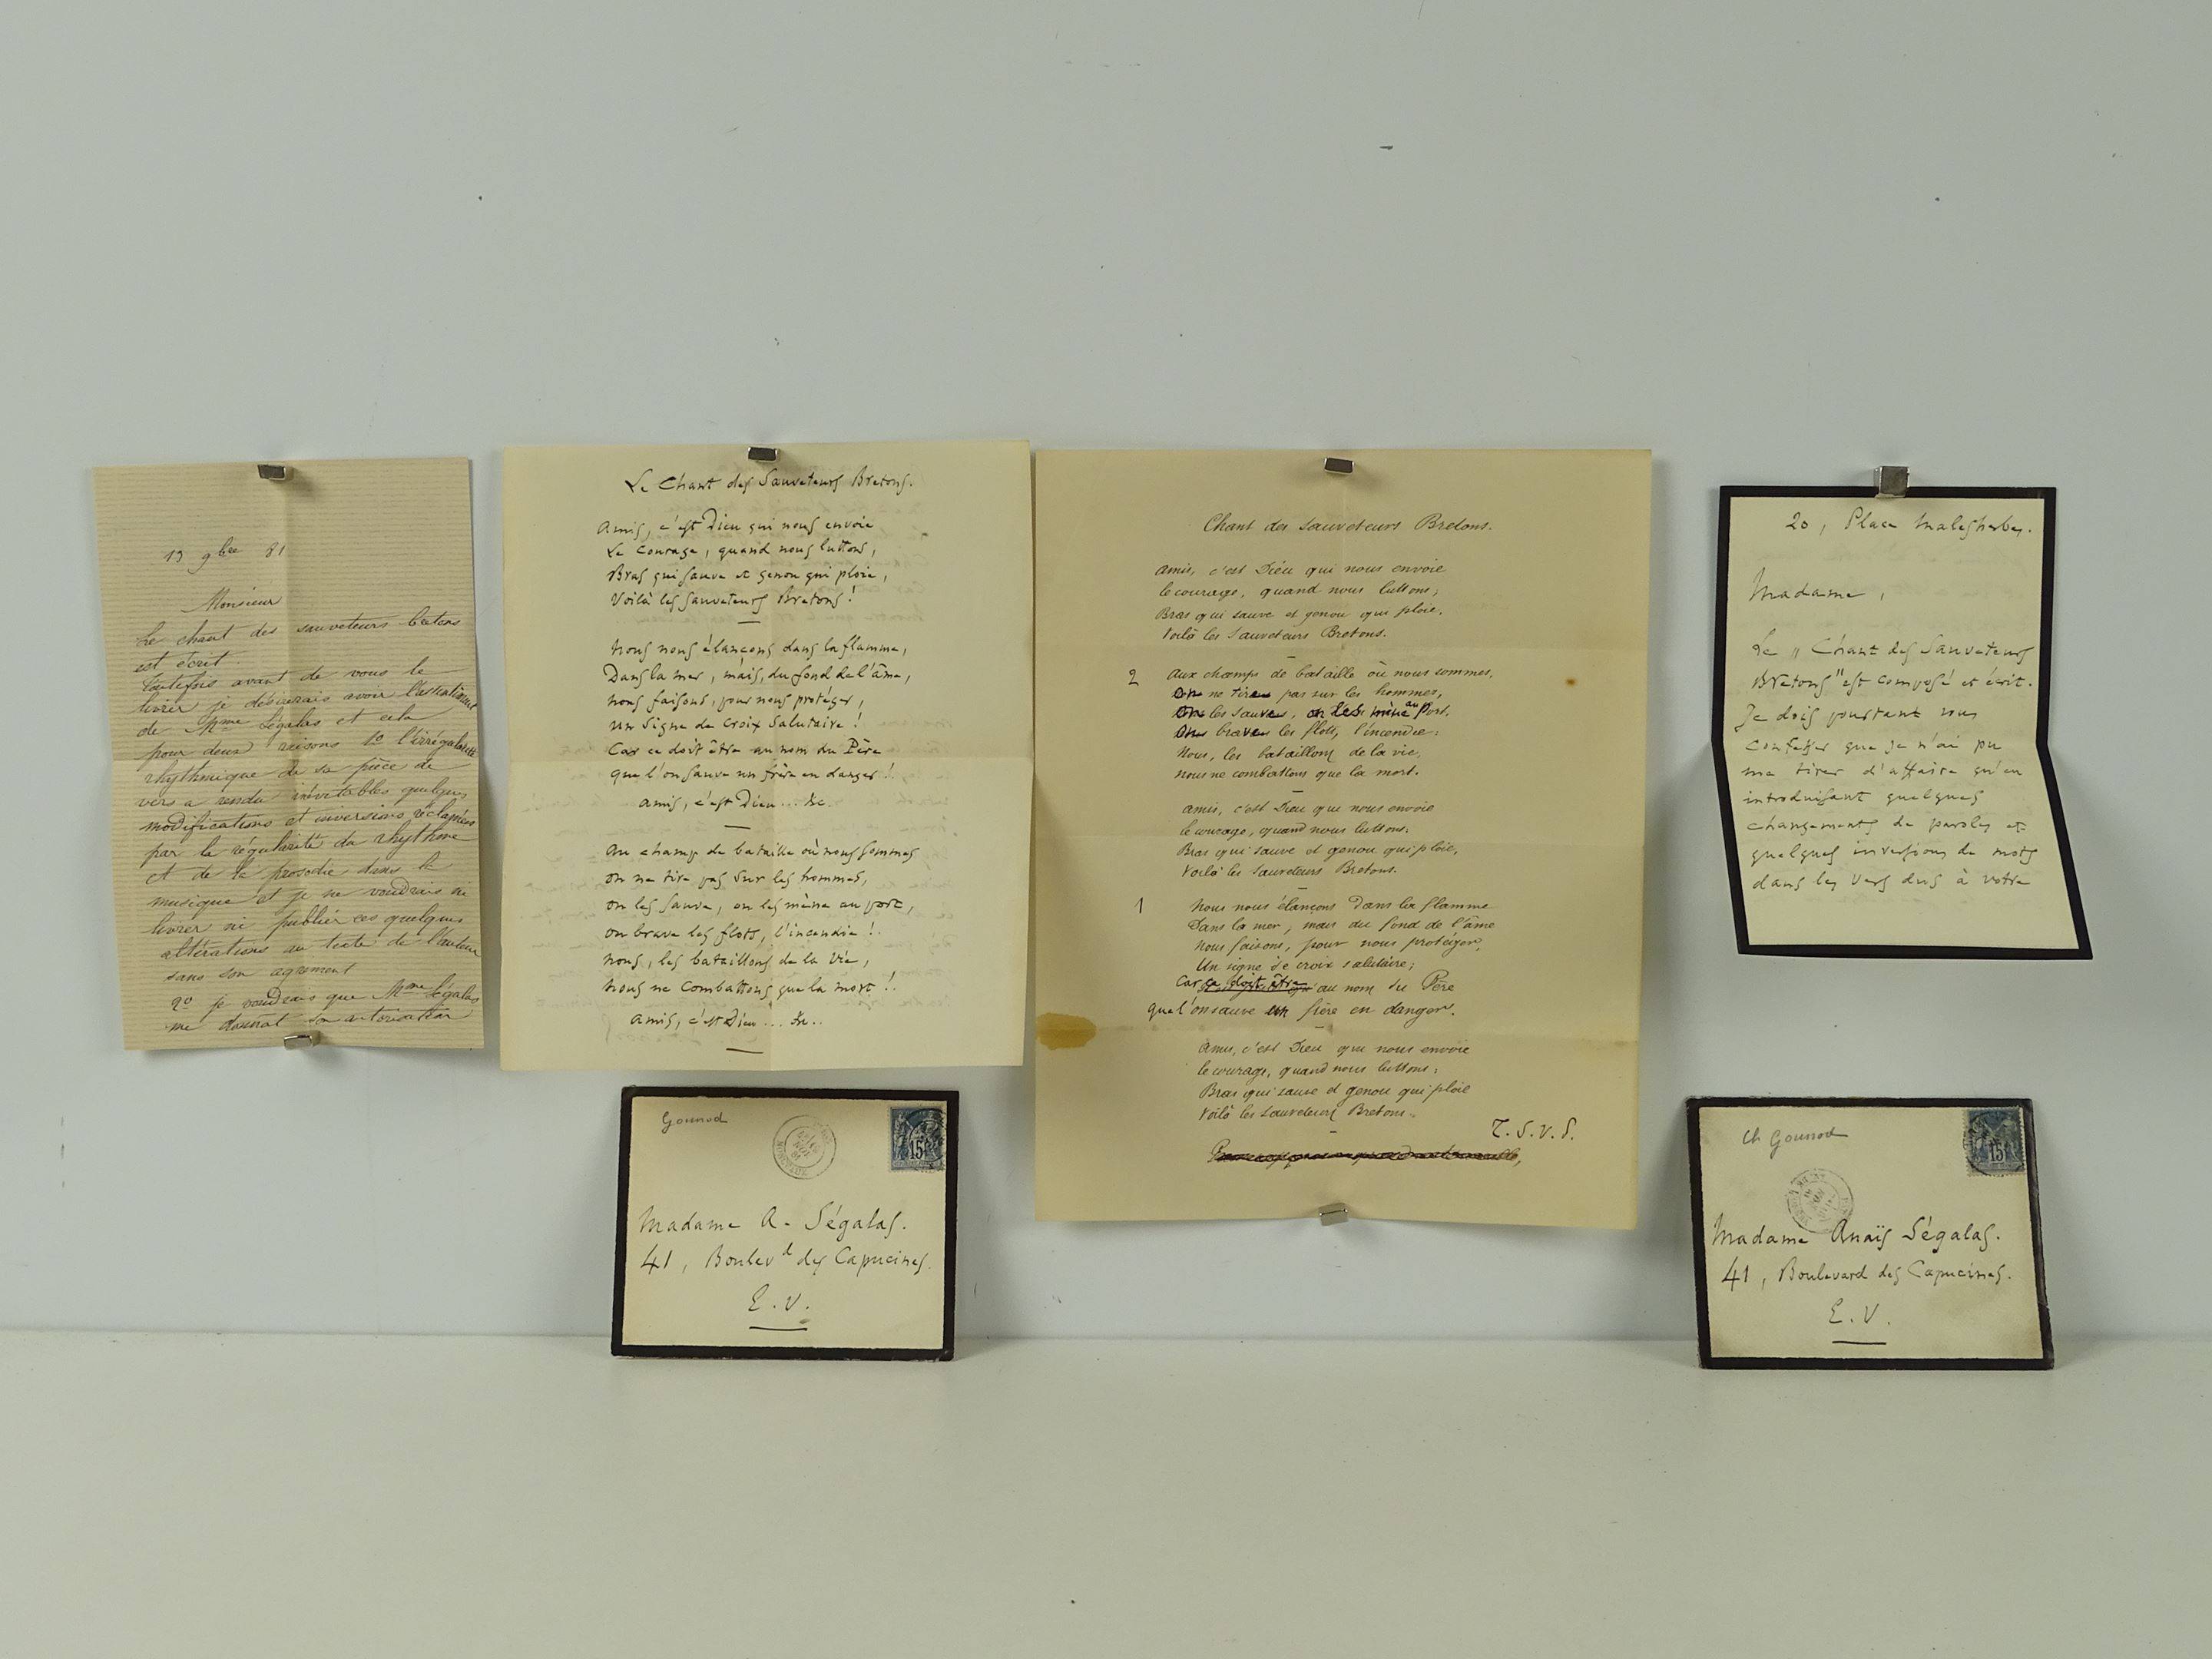 19 9bre 81
Monsieur
Le chant des sauveteurs bretons
est écrit.
Toutefois avant de vous le
livrer je désirerais avoir l'assentiment
de Mme Ségalas et cela
pour deux raisons 1o l'irrégularité
rhythmique de sa pièce de
vers a rendu inévitables quelques
modifications et inversions réclamées
par la régularité du rhythme
et de la prosodie dans la
musique et je ne voudrais ni
livrer ni publier ces quelques
altérations au texte de l'auteur
sans son agrément
2o je voudrais que Mme Ségalas
me donnât son autorisation
Le Chant des Sauveteurs Bretons.
Amis, c'est Dieu qui nous envoie
Le Courage, quand nous luttons,
Bras qui sauve et genou qui ploie,
Voilà les Sauveteurs Bretons !
Nous nous élançons dans la flamme,
Dans la mer, mais, du fond de l'âme,
Nous faisons, pour nous protéger,
Un Signe de Croix Salutaire !
Car ce doit être au nom du Père
que l'on sauve un frère en danger !
Amis, c'est Dieu ... &c.
Au champ de bataille où nous sommes
on ne tire pas sur les hommes,
on les sauve, on les mène au port,
on brave les flots, l'incendie !
Nous, les bataillons de la Vie,
Nous ne combattons que la mort !!
Amis, c'est Dieu ... &c..
Chant des Sauveteurs Bretons.
Amis, c'est Dieu qui nous envoie
le courage, quand nous luttons;
Bras qui sauve et genou qui ploie.
Voilà les Sauveteurs Bretons.
2 Aux champs de bataille où nous sommes,
On ne tire pas sur les hommes,
On les sauve, on les mène au Port.
On brave les flots, l'incendie:
Nous, les bataillons de la vie,
Nous ne combattons que la mort.
Amis, c'est Dieu qui nous envoie
le courage, quand nous luttons:
Bras qui sauve et genou qui ploie,
Voilà les Sauveteurs Bretons.
1 Nous nous élançons dans la flamme
Dans la mer, mais du fond de l'âme
Nous faisons, pour nous protéger,
Un signe de croix salutaire;
Car ce doit être au nom du Père
que l'on sauve un frère en danger.
Amis, c'est Dieu qui nous envoie
le courage, quand nous luttons:
Bras qui sauve et genou qui ploie
Voilà les Sauveteurs Bretons.
T. S. V. P.
20, Place Malesherbes.
Madame,
Le "Chant des Sauveteurs
Bretons" est composé et écrit.
Je dois pourtant vous
confesser que je n'ai pu
me tirer d'affaire qu'en
introduisant quelques
changements de paroles et
quelques inversions de mots
dans les vers dus à votre
Gounod
15
Madame A. Ségalas.
41, Boulevd des Capucines.
E. V.
Ch Gounod
15
Madame Anaïs Ségalas.
41, Boulevard des Capucines.
E. V.